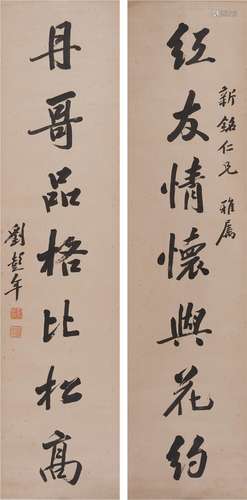 新銘仁兄 雅屬
紅友情懷與花約
丹哥品格比松高
劉彭年